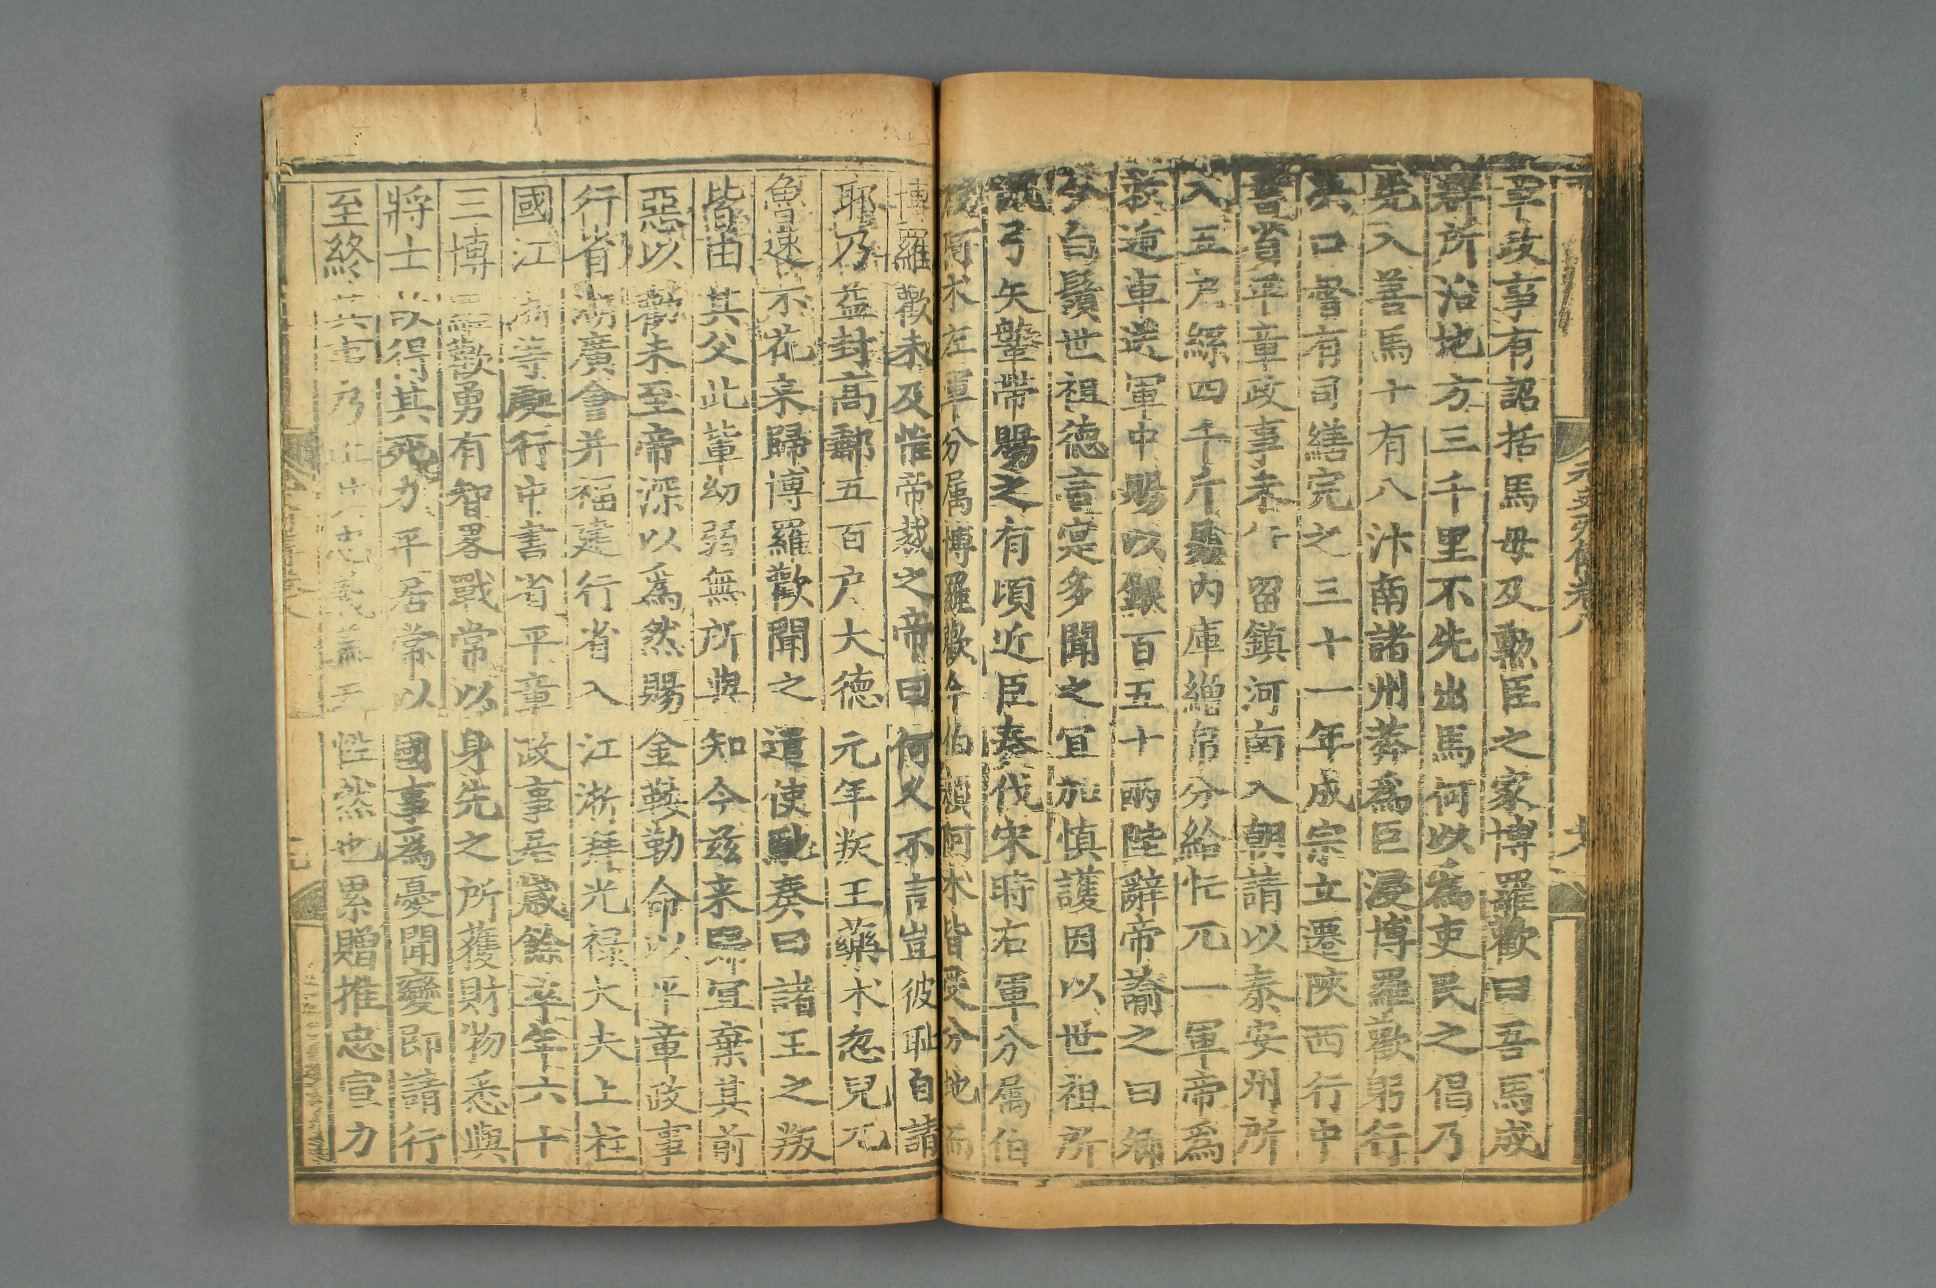 元史列傳卷八
宰政事有詔括馬毋及勳臣之家博羅歡曰吾馬成
羣所治地方三千里不先出馬何以爲吏民之倡乃
先入善馬十有八汴南諸州莽爲巨浸博羅歡躬行
決口督有司繕完之三十一年成宗立遷陝西行中
書省平章政事未行留鎮河南入朝請以泰安州所
入五戶絲四千斤易內庫繒帛分給忙兀一軍帝爲
敕遞車送軍中賜以銀百五十兩陛辭帝諭之曰卿
今白鬚世祖德言寔多聞之宜加慎護因以世祖所
弓矢鞶帶賜之有頃近臣奏伐宋時右軍分屬伯
阿木左軍分属博羅歡今伯顏阿木皆受分地而
博羅歡未及惟帝裁之帝曰何乆不言豈彼耻自請
耶乃益封高郵五百戶大德元年叛王藥木忽兒兀
魯速不花来歸博羅歡聞之遣使馳奏曰諸王之叛
皆由其父此輩幼弱無所與知今茲来歸宜棄其前
惡以勸未至帝深以爲然賜金鞍勒命以平章政事
行省湖廣會并福建行省入江浙拜光禄大夫上柱
國江浙等處行中書省平章政事居歲餘卒年六十
三博羅歡勇有智畧戰常以身先之所獲財物悉與
將士故得其死力平居常以國事爲憂聞變即請行
至終其事乃止其忠義蓋天性然也累贈推忠宣力